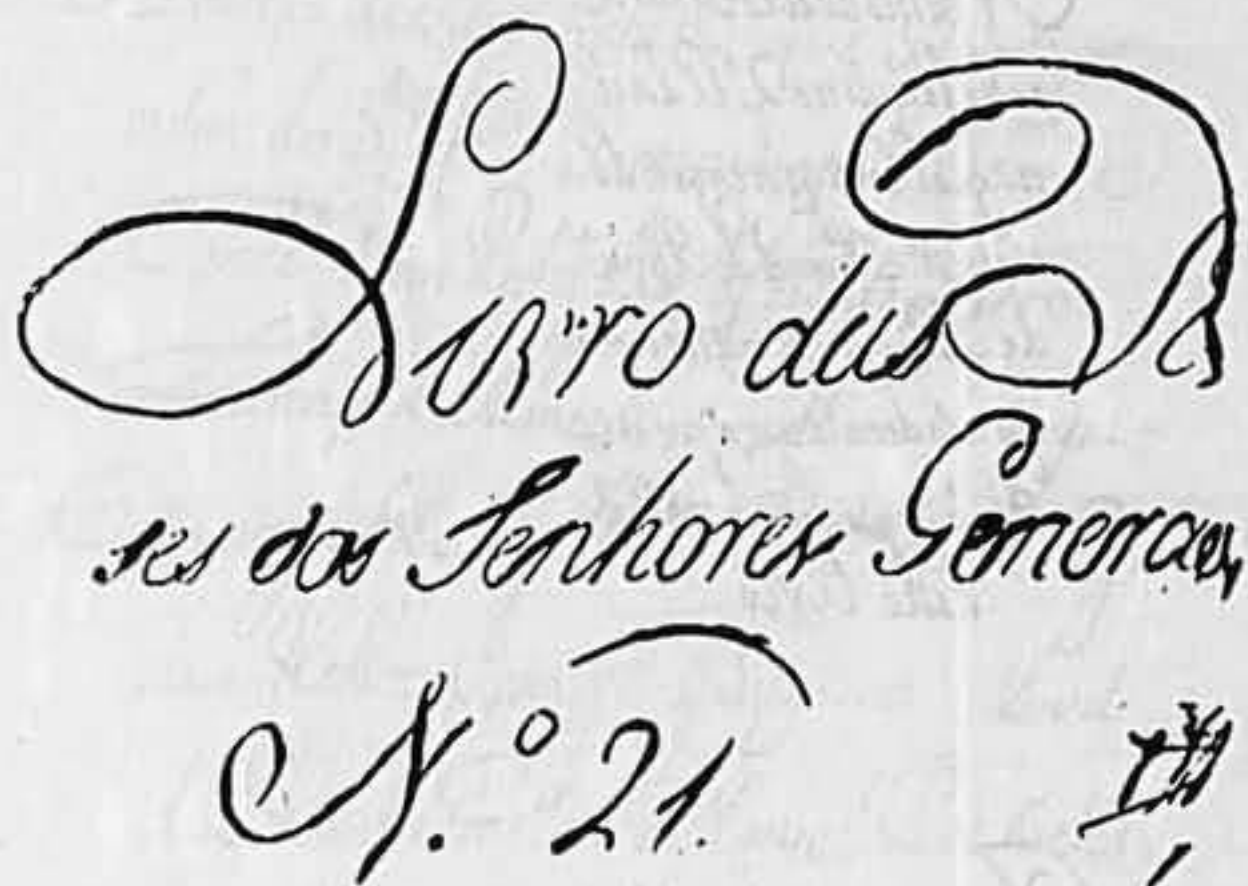 Livro das
ses dos Senhores Generaes
N.º 21.